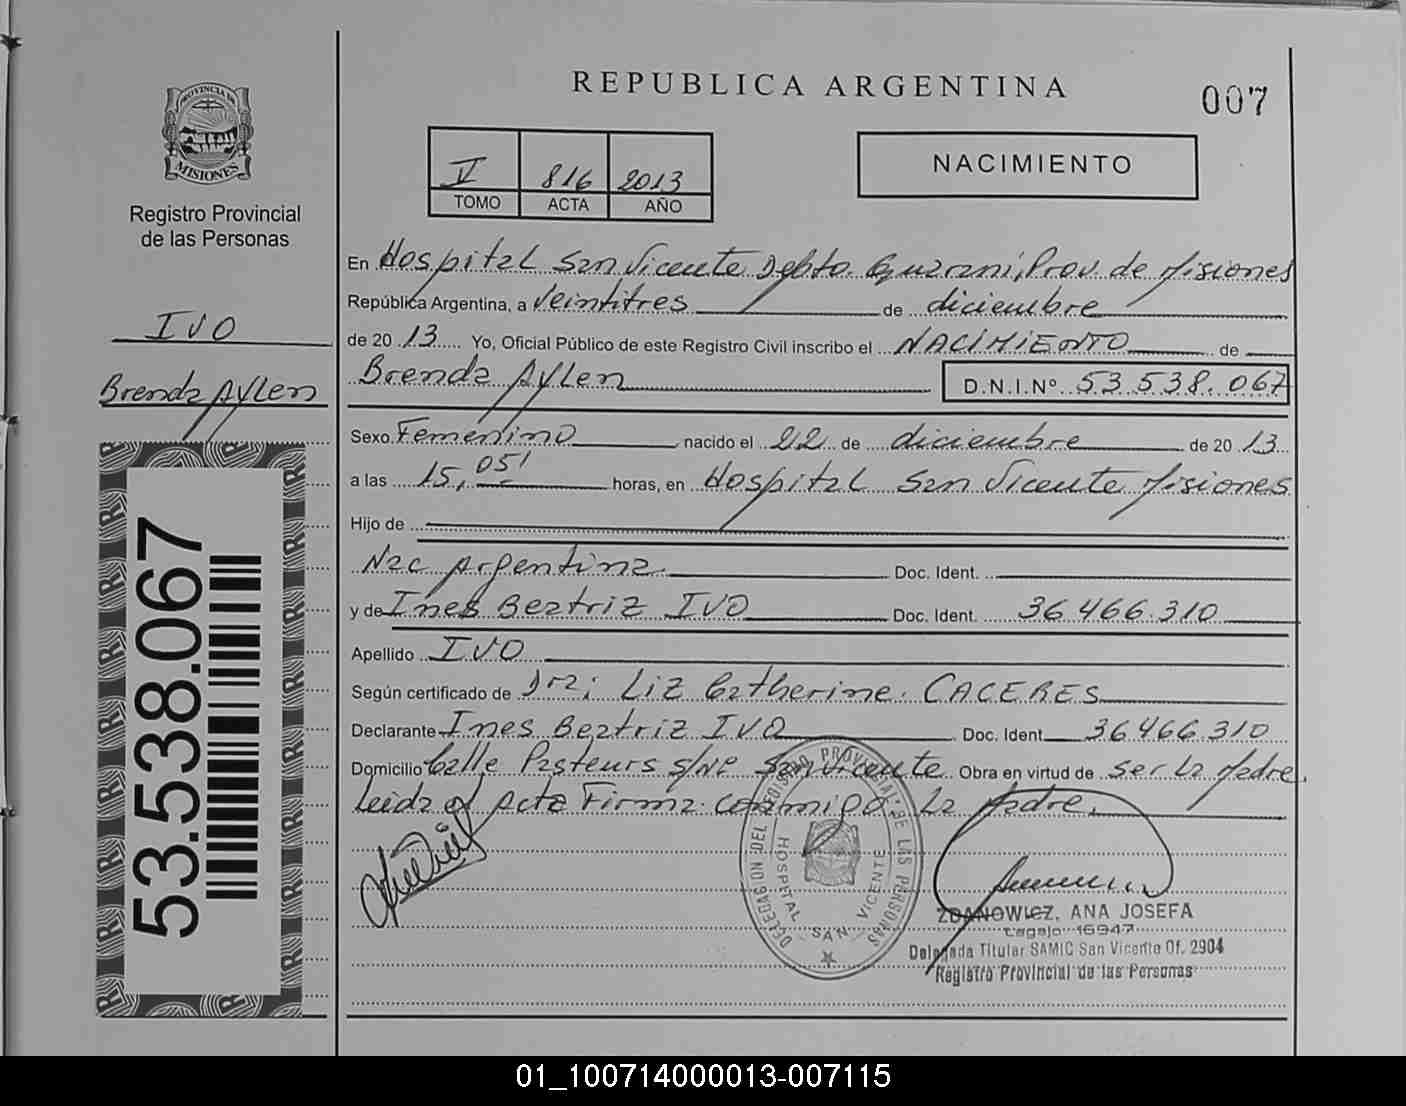 REPUBLICA ARGENTINA
007
PROVINCIA DE
MISIONES
Registro Provincial
de las Personas
V 816 2013
TOMO ACTA AÑO
NACIMIENTO
En Hospital San Vicente Depto. Guarani, Prov. de Misiones
República Argentina, a Veintitres de diciembre
de 20 13 Yo, Oficial Público de este Registro Civil inscribo el NACIMIENTO de
Brenda Aylen D.N.I.Nº 53.538.067
IVO
Brenda Aylen
Sexo Femenino nacido el 22 de diciembre de 20 13
a las 15,05' horas, en Hospital San Vicente Misiones
Hijo de
Nac Argentina Doc. Ident.
y de Ines Beatriz IVO Doc. Ident. 36.466.310
Apellido IVO
Según certificado de Dra; Liz Catherine CACERES
Declarante Ines Beatriz IVO Doc. Ident 36.466.310
Domicilio Calle Pasteurs s/Nº San Vicente Obra en virtud de ser La Madre
Leida el Acta Firma conmigo La Madre.
53.538.067
DELEGACION DEL REGISTRO PROVINCIAL DE LAS PERSONAS
HOSPITAL SAN VICENTE
ZDANOWICZ, ANA JOSEFA
Legajo 16947
Delegada Titular SAMIC San Vicente Of. 2904
Registro Provincial de las Personas
01_100714000013-007115